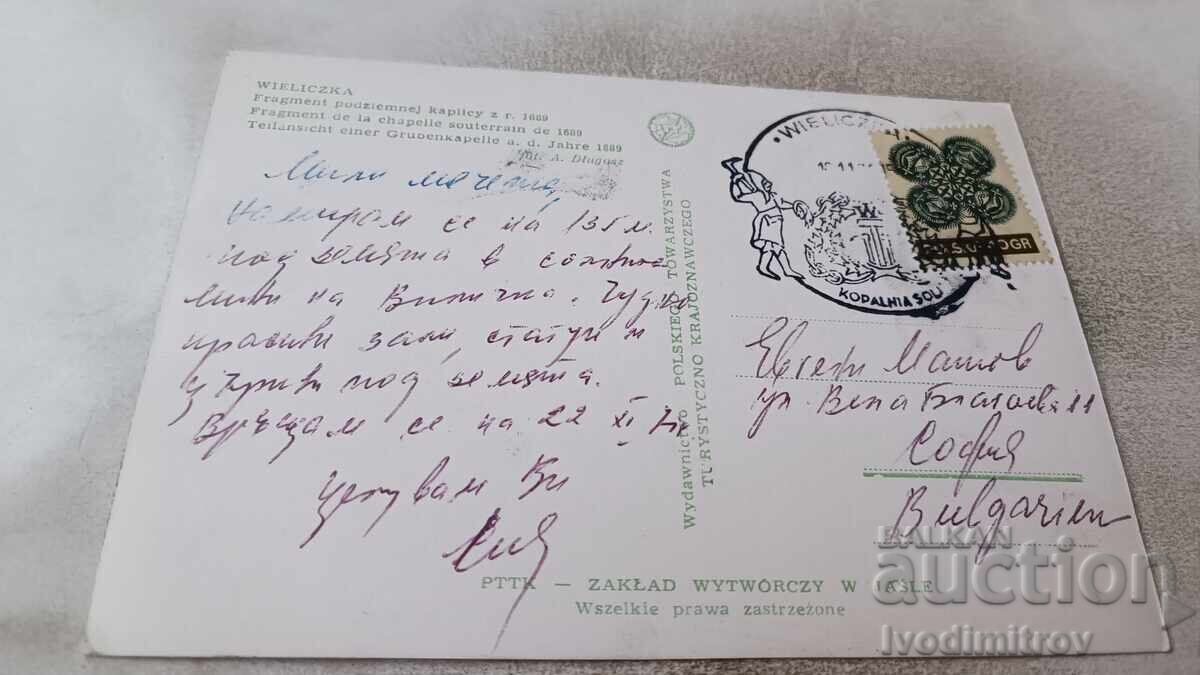 WIELICZKA
Fragment podziemnej kaplicy z r. 1689
Fragment de la chapelle souterrain de 1689
Teilansicht einer Grubenkapelle a. d. Jahre 1689
fot. A. Długosz
Мили
Намирам се на 135 м.
под земята в солните
мини на Величка. Чудно
красиви зали, статуи и
под земята.
Връщам се на 22 XI
Целувам Ви
Wydawnictwo POLSKIEGO TOWARZYSTWA
TURYSTYCZNO KRAJOZNAWCZEGO
WIELICZKA
KOPALNIA SOLI
Евгени
ул. Вела Благоева 11
София
Bulgarien
PTTK — ZAKŁAD WYTWÓRCZY W JAŚLE
Wszelkie prawa zastrzeżone
BALKAN
auction
Ivodimitrov